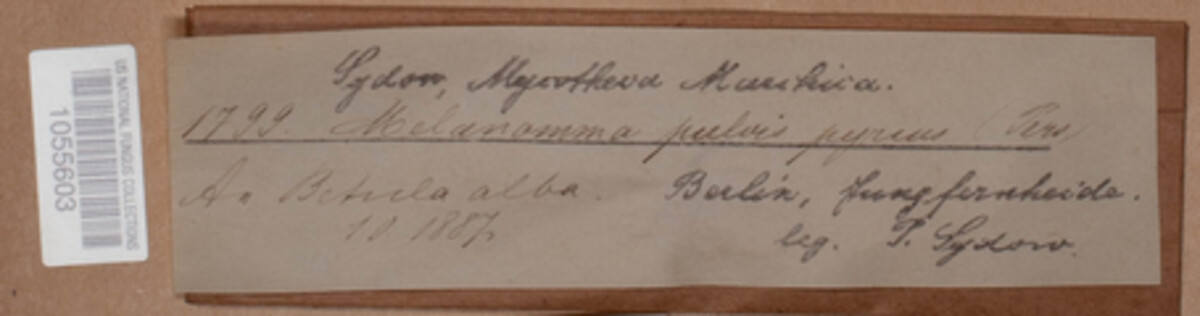 US NATIONAL FUNGUS COLLECTIONS
1055603
Sydow, Mycotheca Marchica.
1799. Melanomma pulvis pyrius (Pers
An Betula alba. Berlin, Jungfernheide.
10. 1887, leg. P. Sydow.